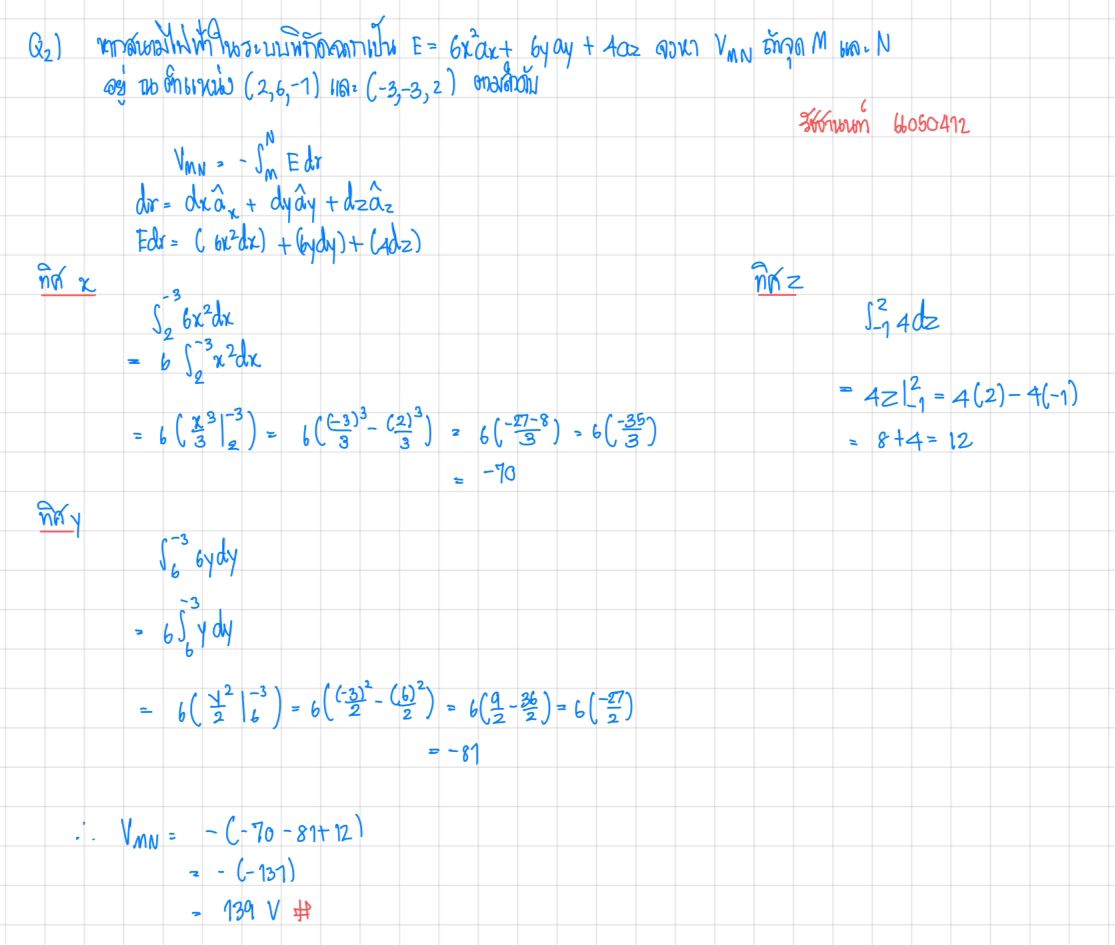 Q2) หากสนามไฟฟ้าในระบบพิกัดฉากเป็น E = 6x²ax + 6yay + 4az จงหา VMN ถ้าจุด M และ N
อยู่ ณ ตำแหน่ง (2,6,-1) และ (-3,-3,2) ตามลำดับ
66050412
VMN = -∫_M^N E dr
dr = dxâx + dyây + dzâz
Edr = (6x²dx) + (6ydy) + (4dz)
ทิศ x
∫_2^-3 6x²dx
= 6 ∫_2^-3 x²dx
= 6(x³/3 |_2^-3) = 6((-3)³/3 - (2)³/3) = 6(-27-8/3) = 6(-35/3)
= -70
ทิศ z
∫_-1^2 4dz
= 4z|_-1^2 = 4(2) - 4(-1)
= 8+4 = 12
ทิศ y
∫_6^-3 6ydy
= 6∫_6^-3 ydy
= 6(y²/2 |_6^-3) = 6((-3)²/2 - (6)²/2) = 6(9/2 - 36/2) = 6(-27/2)
= -81
∴ VMN = -(-70 - 81 + 12)
= -(-139)
= 139 V #